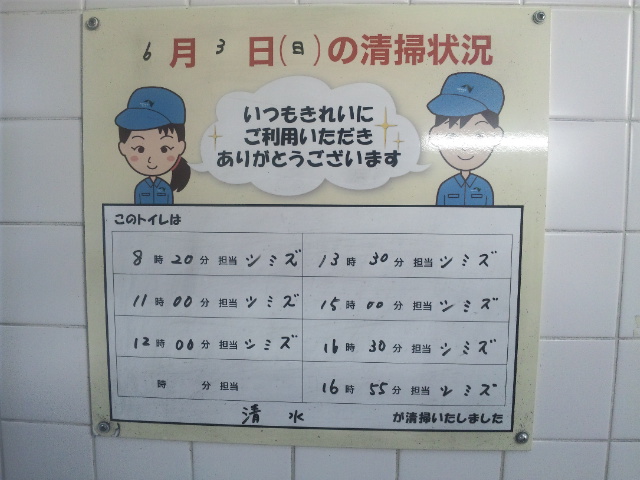 6月3日(日)の清掃状況
いつもきれいに
ご利用いただき
ありがとうございます
このトイレは
8時20分担当シミズ 13時30分担当シミズ
11時00分担当シミズ 15時00分担当シミズ
12時00分担当シミズ 16時30分担当シミズ
時 分担当 16時55分担当シミズ
清水 が清掃いたしました